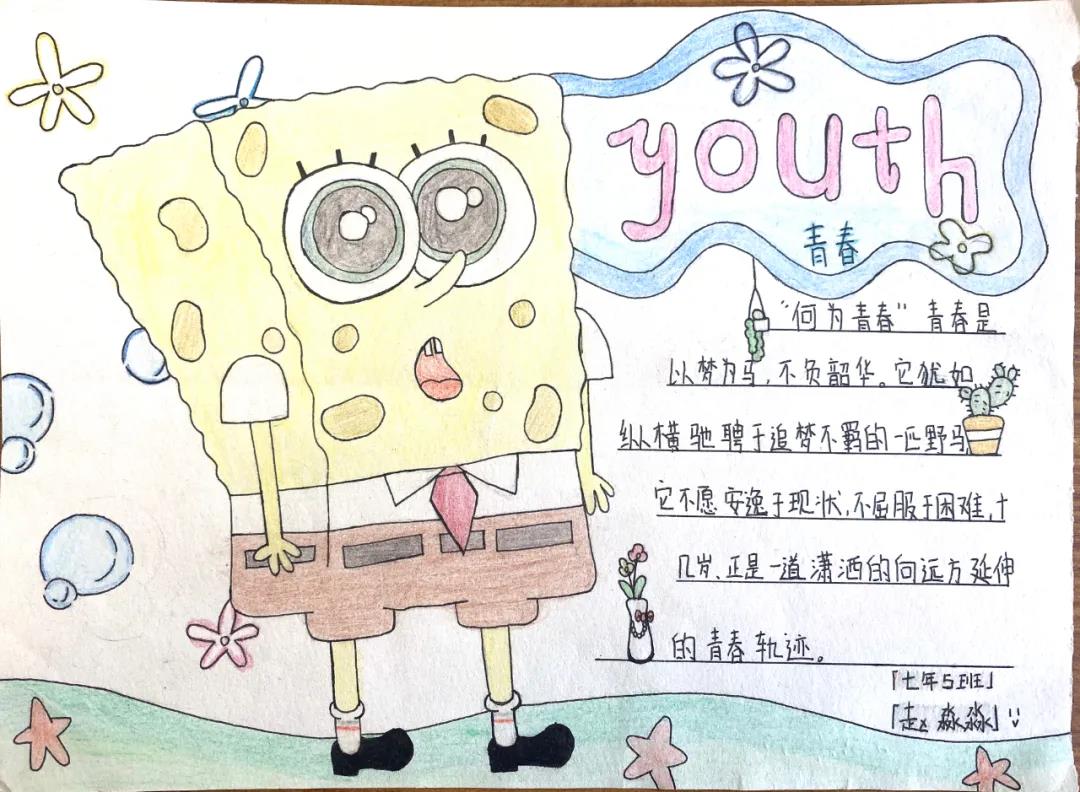 youth
青春
“何为青春”青春是
以梦为马,不负韶华。它犹如
纵横驰聘于追梦不羁的一匹野马
它不愿安逸于现状,不屈服于困难,十
几岁、正是一道潇洒的向远方延伸
的青春轨迹。
「七年5班」
「赵淼淼」